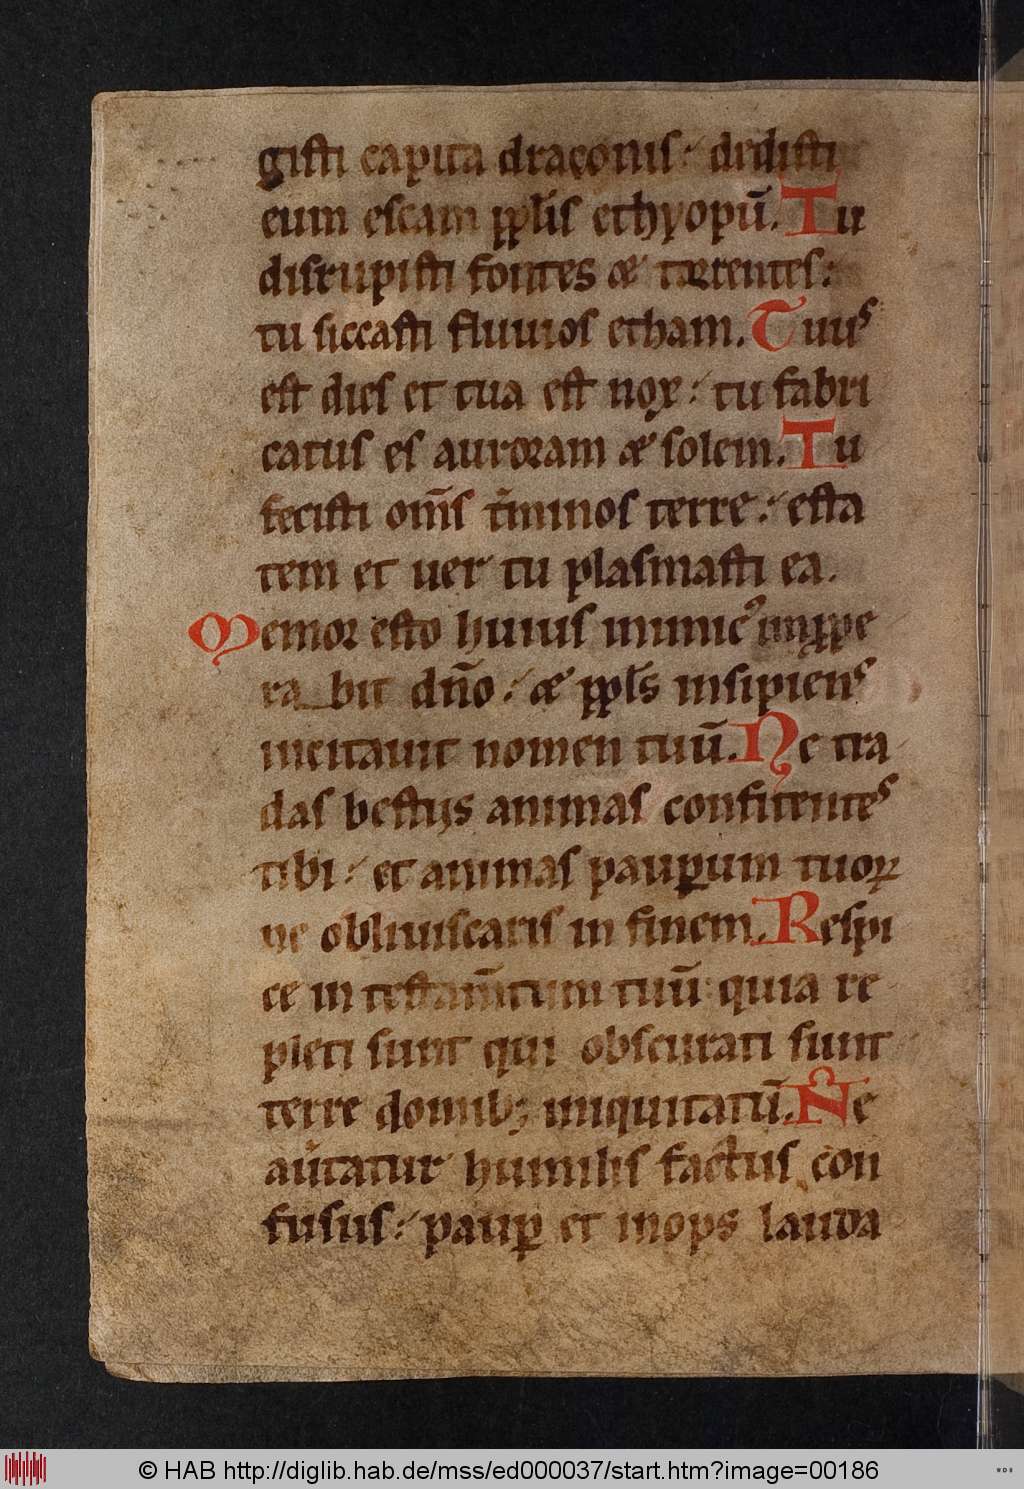 gisti capita draconis: dedisti
eum escam pplis ethyopū. Tu
disrupisti fontes & torrentes:
tu siccasti fluuios etham. Tuus
est dies et tua est nox: tu fabri
catus es auroram & solem. Tu
fecisti om̄s t̄minos terre: esta
tem et uer tu plasmasti ea.
Memor esto huius inimic᾿ inppe
ra bit dn̄o: & ppls insipiens
incitauit nomen tuū. Ne tra
das bestijs animas confitentes
tibi: et animas paupum tuoꝝ
ne obliuiscaris in finem. Respi
ce in testam̄tum tuū: quia re
pleti sunt qui obscurati sunt
terre domib; iniquitatū. Ne
aūtatur humilis factus con
fusus: paup et inops lauda
© HAB http://diglib.hab.de/mss/ed000037/start.htm?image=00186